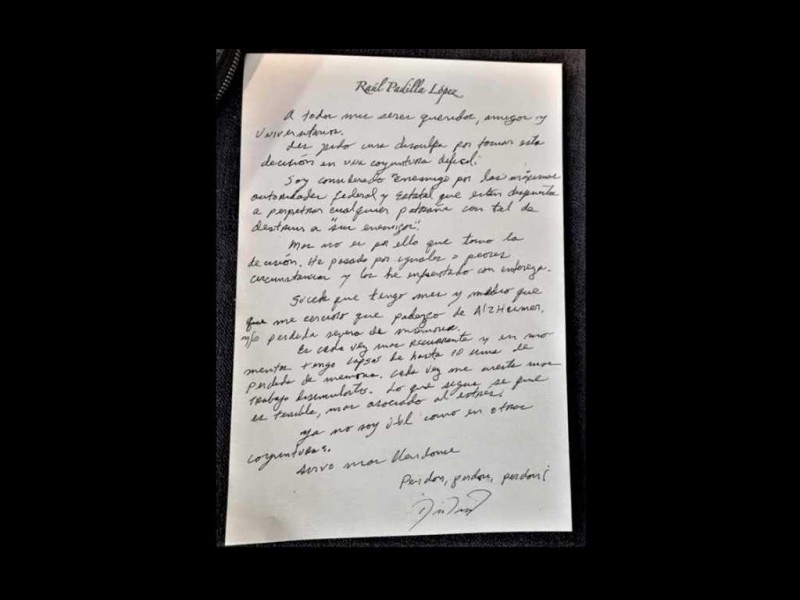 Raúl Padilla López
A todos mis seres queridos, amigos y
Universitarios.
Les pido una disculpa por tomar esta
decisión en una coyuntura difícil.
Soy considerado "Enemigo por las máximas
autoridades federal y Estatal que están dispuestas
a perpetrar cualquier patraña con tal de
destruir a "sus enemigos".
Mas no es por ello que tomo la
decisión. He pasado por iguales o peores
circunstancias y las he enfrentado con entereza.
Sucede que tengo mes y medio que
que me cercioro que padezco de Alzheimer,
y/o perdida severa de memoria.
Es cada vez mas recurrente y en mo
mentos tengo lapsos de hasta 10 de
perdida de memoria. Cada vez me cuesta mas
trabajo disimularlo. Lo que sigue se que
es terrible, mas asociado al estres.
Ya no soy útil como en otras
coyunturas.
mas
Perdon, perdon, perdon!